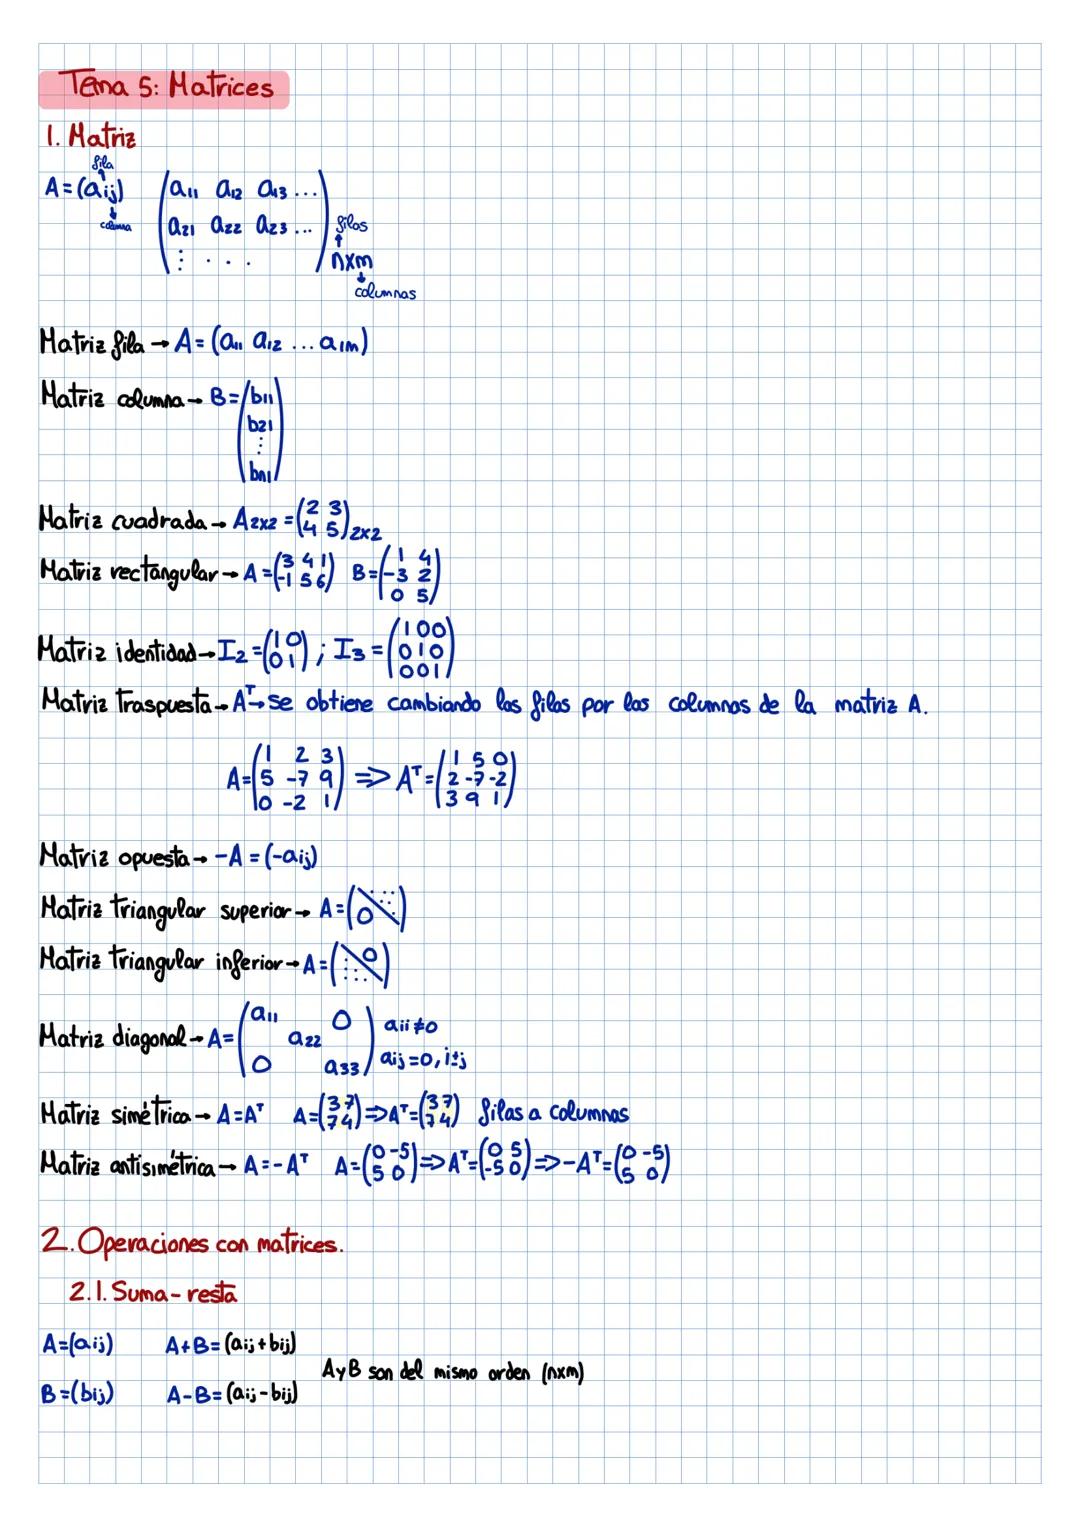 Tema 5: Matrices
1. Matriz
fila
A = (aij)
columna
(a11 a12 a13 ...
a21 a22 a23 ...
⋮ . . .) nxm
filas
columnas
Matriz fila → A = (a11 a12 ... a1m)
Matriz columna → B = (b11
b21
⋮
bn1)
Matriz cuadrada → A2x2 = (2 3
4 5)2x2
Matriz rectángular → A = (3 4 1
-1 5 6) B = (1 4
-3 2
0 5)
Matriz identidad → I2 = (1 0
0 1) ; I3 = (1 0 0
0 1 0
0 0 1)
Matriz traspuesta → Aᵀ → se obtiene cambiando las filas por las columnas de la matriz A.
A = (1 2 3
5 -7 9
0 -2 1) ⇒ Aᵀ = (1 5 0
2 -7 -2
3 9 1)
Matriz opuesta → -A = (-aij)
Matriz triangular superior → A = (0 ⋱ ...)
Matriz triangular inferior → A = (... ⋱ 0)
Matriz diagonal → A = (a11 0
a22
0 a33) aii ≠ 0
aij = 0, i≠j
Matriz simétrica → A = Aᵀ A = (3 7
7 4) ⇒ Aᵀ = (3 7
7 4) filas a columnas
Matriz antisimétrica → A = -Aᵀ A = (0 -5
5 0) ⇒ Aᵀ = (0 5
-5 0) ⇒ -Aᵀ = (0 -5
5 0)
2. Operaciones con matrices.
2.1. Suma - resta
A = (aij) A + B = (aij + bij)
A y B son del mismo orden (nxm)
B = (bij) A - B = (aij - bij)